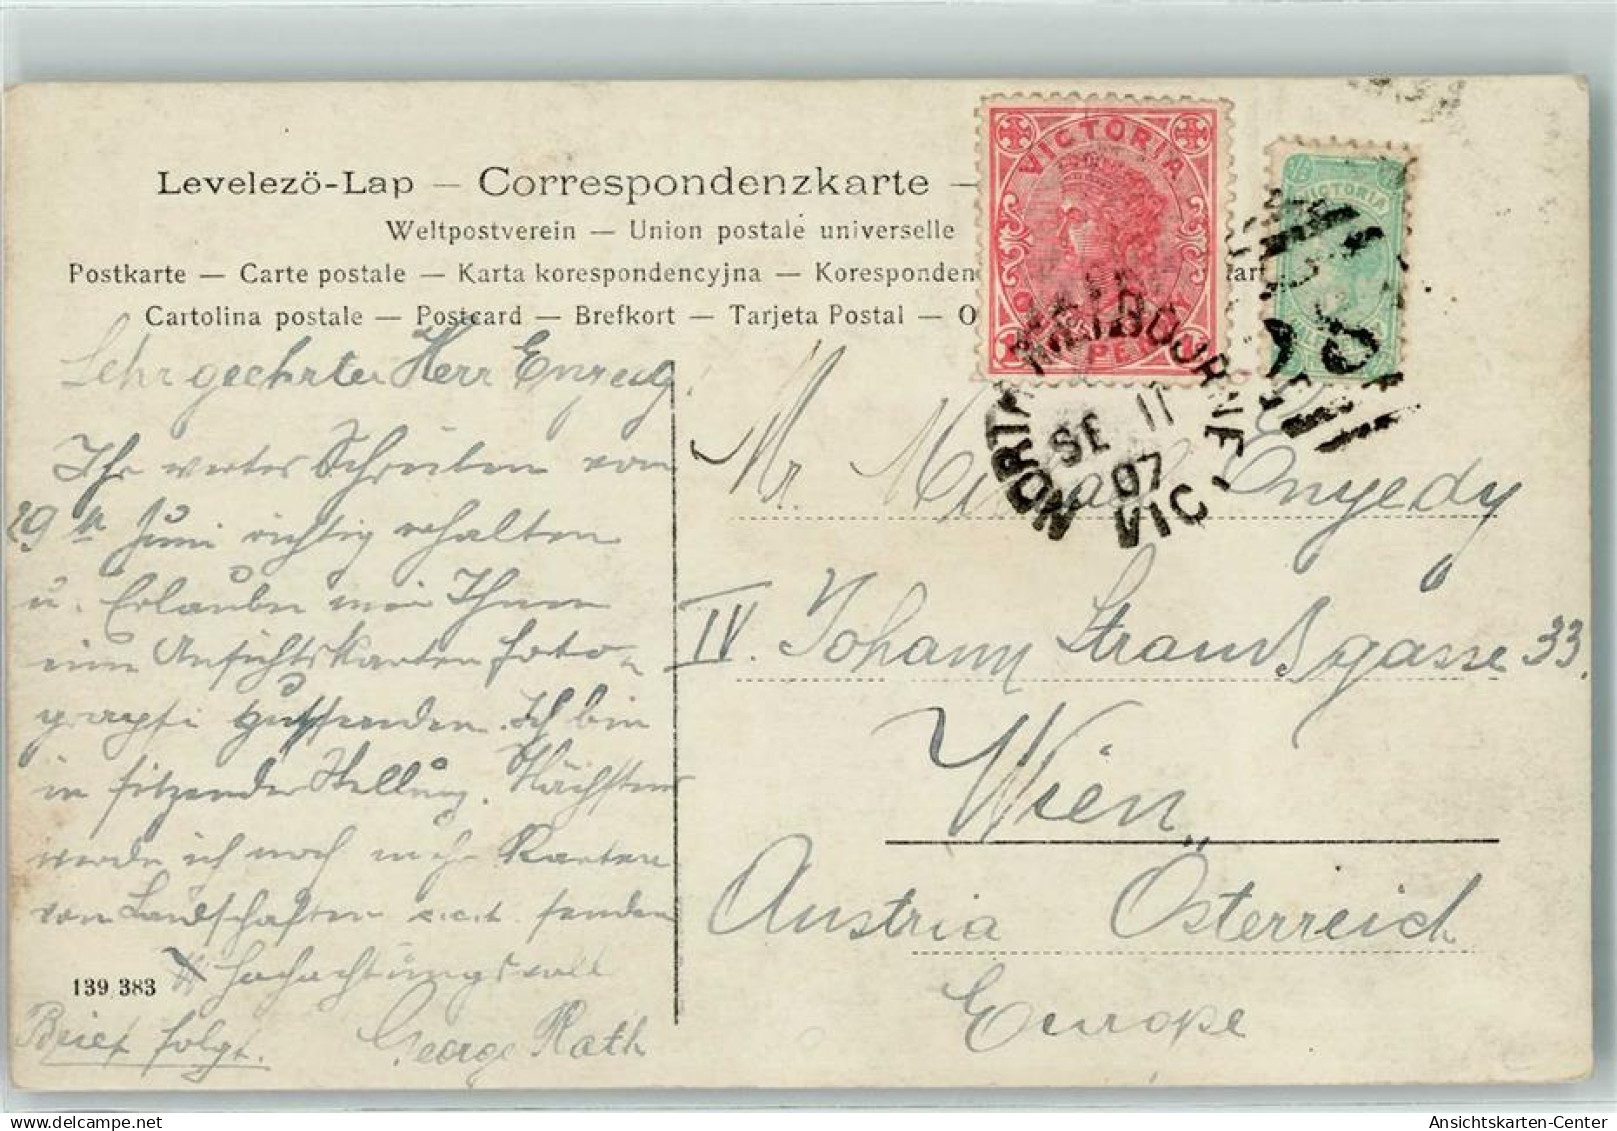 Levelezö-Lap — Correspondenzkarte —
Weltpostverein — Union postale universelle
Postkarte — Carte postale — Karta korespondencyjna — Koresponden
Cartolina postale — Postcard — Brefkort — Tarjeta Postal — O
VICTORIA
ONE PENNY
VICTORIA
NORTH MELBOURNE
SE 11
07
VIC
Sehr geehrter Herr Enyedy
Ihr wertes Schreiben vom
29 Juni richtig erhalten
u. Erlaube mir Ihnen
eine Ansichtskarten foto-
grapfi zuzusenden. Ich bin
in sitzender Stellung. Nächstens
werde ich noch mehr Karten
von Landschaften e.c.t. senden
Hochachtungsvoll
Brief folgt. George Rath
139 383
Mr Enyedy
IV. Johann Straußgasse 33.
Wien
Austria Österreich
Europe
Ansichtskarten-Center